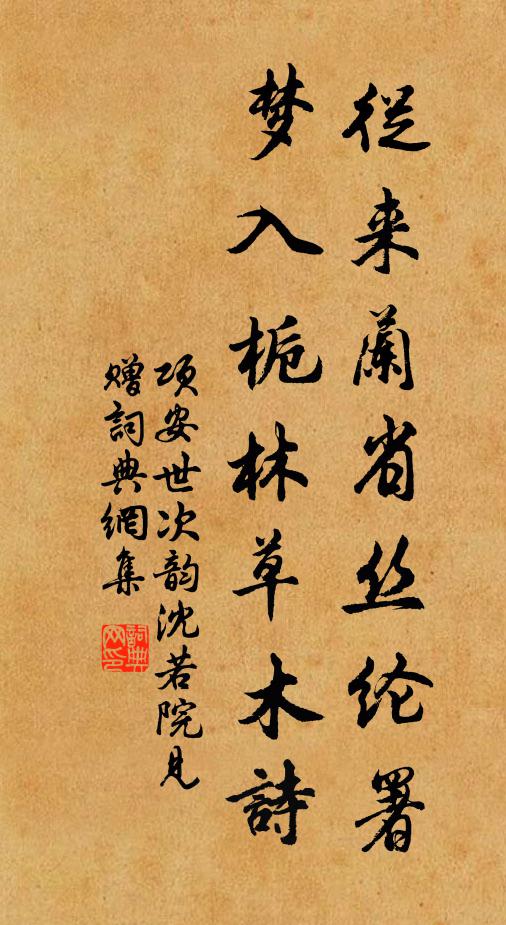 從来蘭省丝纶署
梦入栀林草木詩
项安世次韵沈若院见
赠詞典網集
詞典网印